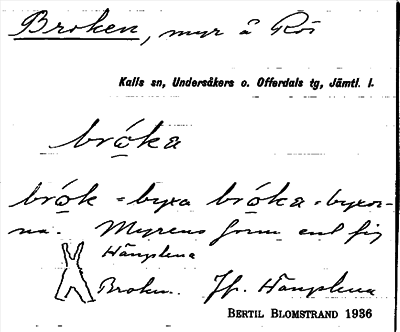 Broken, myr å Rös
Kalls sn, Undersåkers o. Offerdals tg, Jämtl. l.
brǫ́ka
brǫ́k = byxa brǫ́ka = byxor-
na. Myrens form enl fig
Hängslena
Broken. Jfr. Hängslena
BERTIL BLOMSTRAND 1936